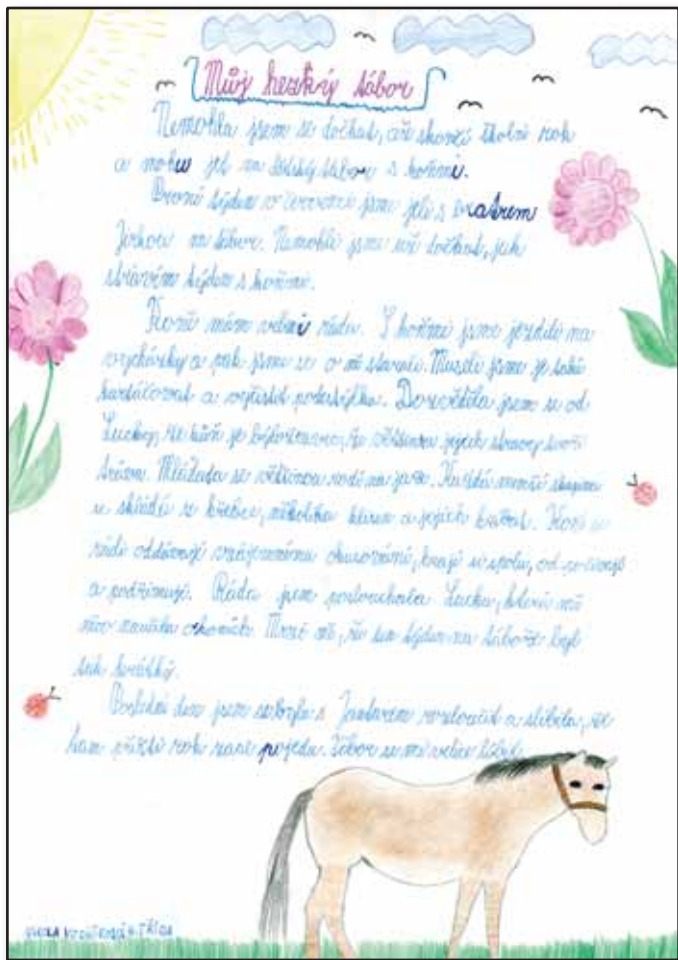 Můj hezký tábor
Nemohla jsem se dočkat, až skončí školní rok
a mohu jet na dětský tábor s koňmi.
První týden v červenci jsme jeli s bratrem
Jirkou na tábor. Nemohli jsme se dočkat, jak
strávím týden s koňmi.
Koně mám velmi ráda. S koňmi jsme jezdili na
vycházky a pak jsme se o ně starali. Museli jsme je také
kartáčovat a vyčistit podestýlku. Dozvěděla jsem se od
Lucky, že kůň je býložravec, že většinu jejich stravy tvoří
tráva. Mláďata se většinou rodí na jaře. Každá menší skupina
se skládá z hřebce, několika klisen a jejich hříbat. Koně se
rádi oddávají vzájemnému okusování, hrají si spolu, odpočívají
a podřimují. Ráda jsem poslouchala Lucku, která mě
více naučila o koních. Mrzí mě, že ten týden na táboře byl
tak krátký.
Poslední den jsem se byla s Jantarem rozloučit a slíbila, že
tam příští rok zase pojedu. Tábor se mi velice líbil.
4. TŘÍDA